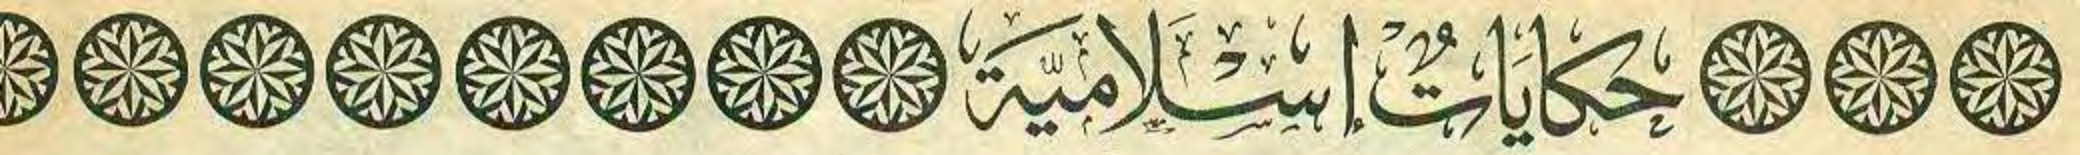 حكاياتٌ إسلاميّة